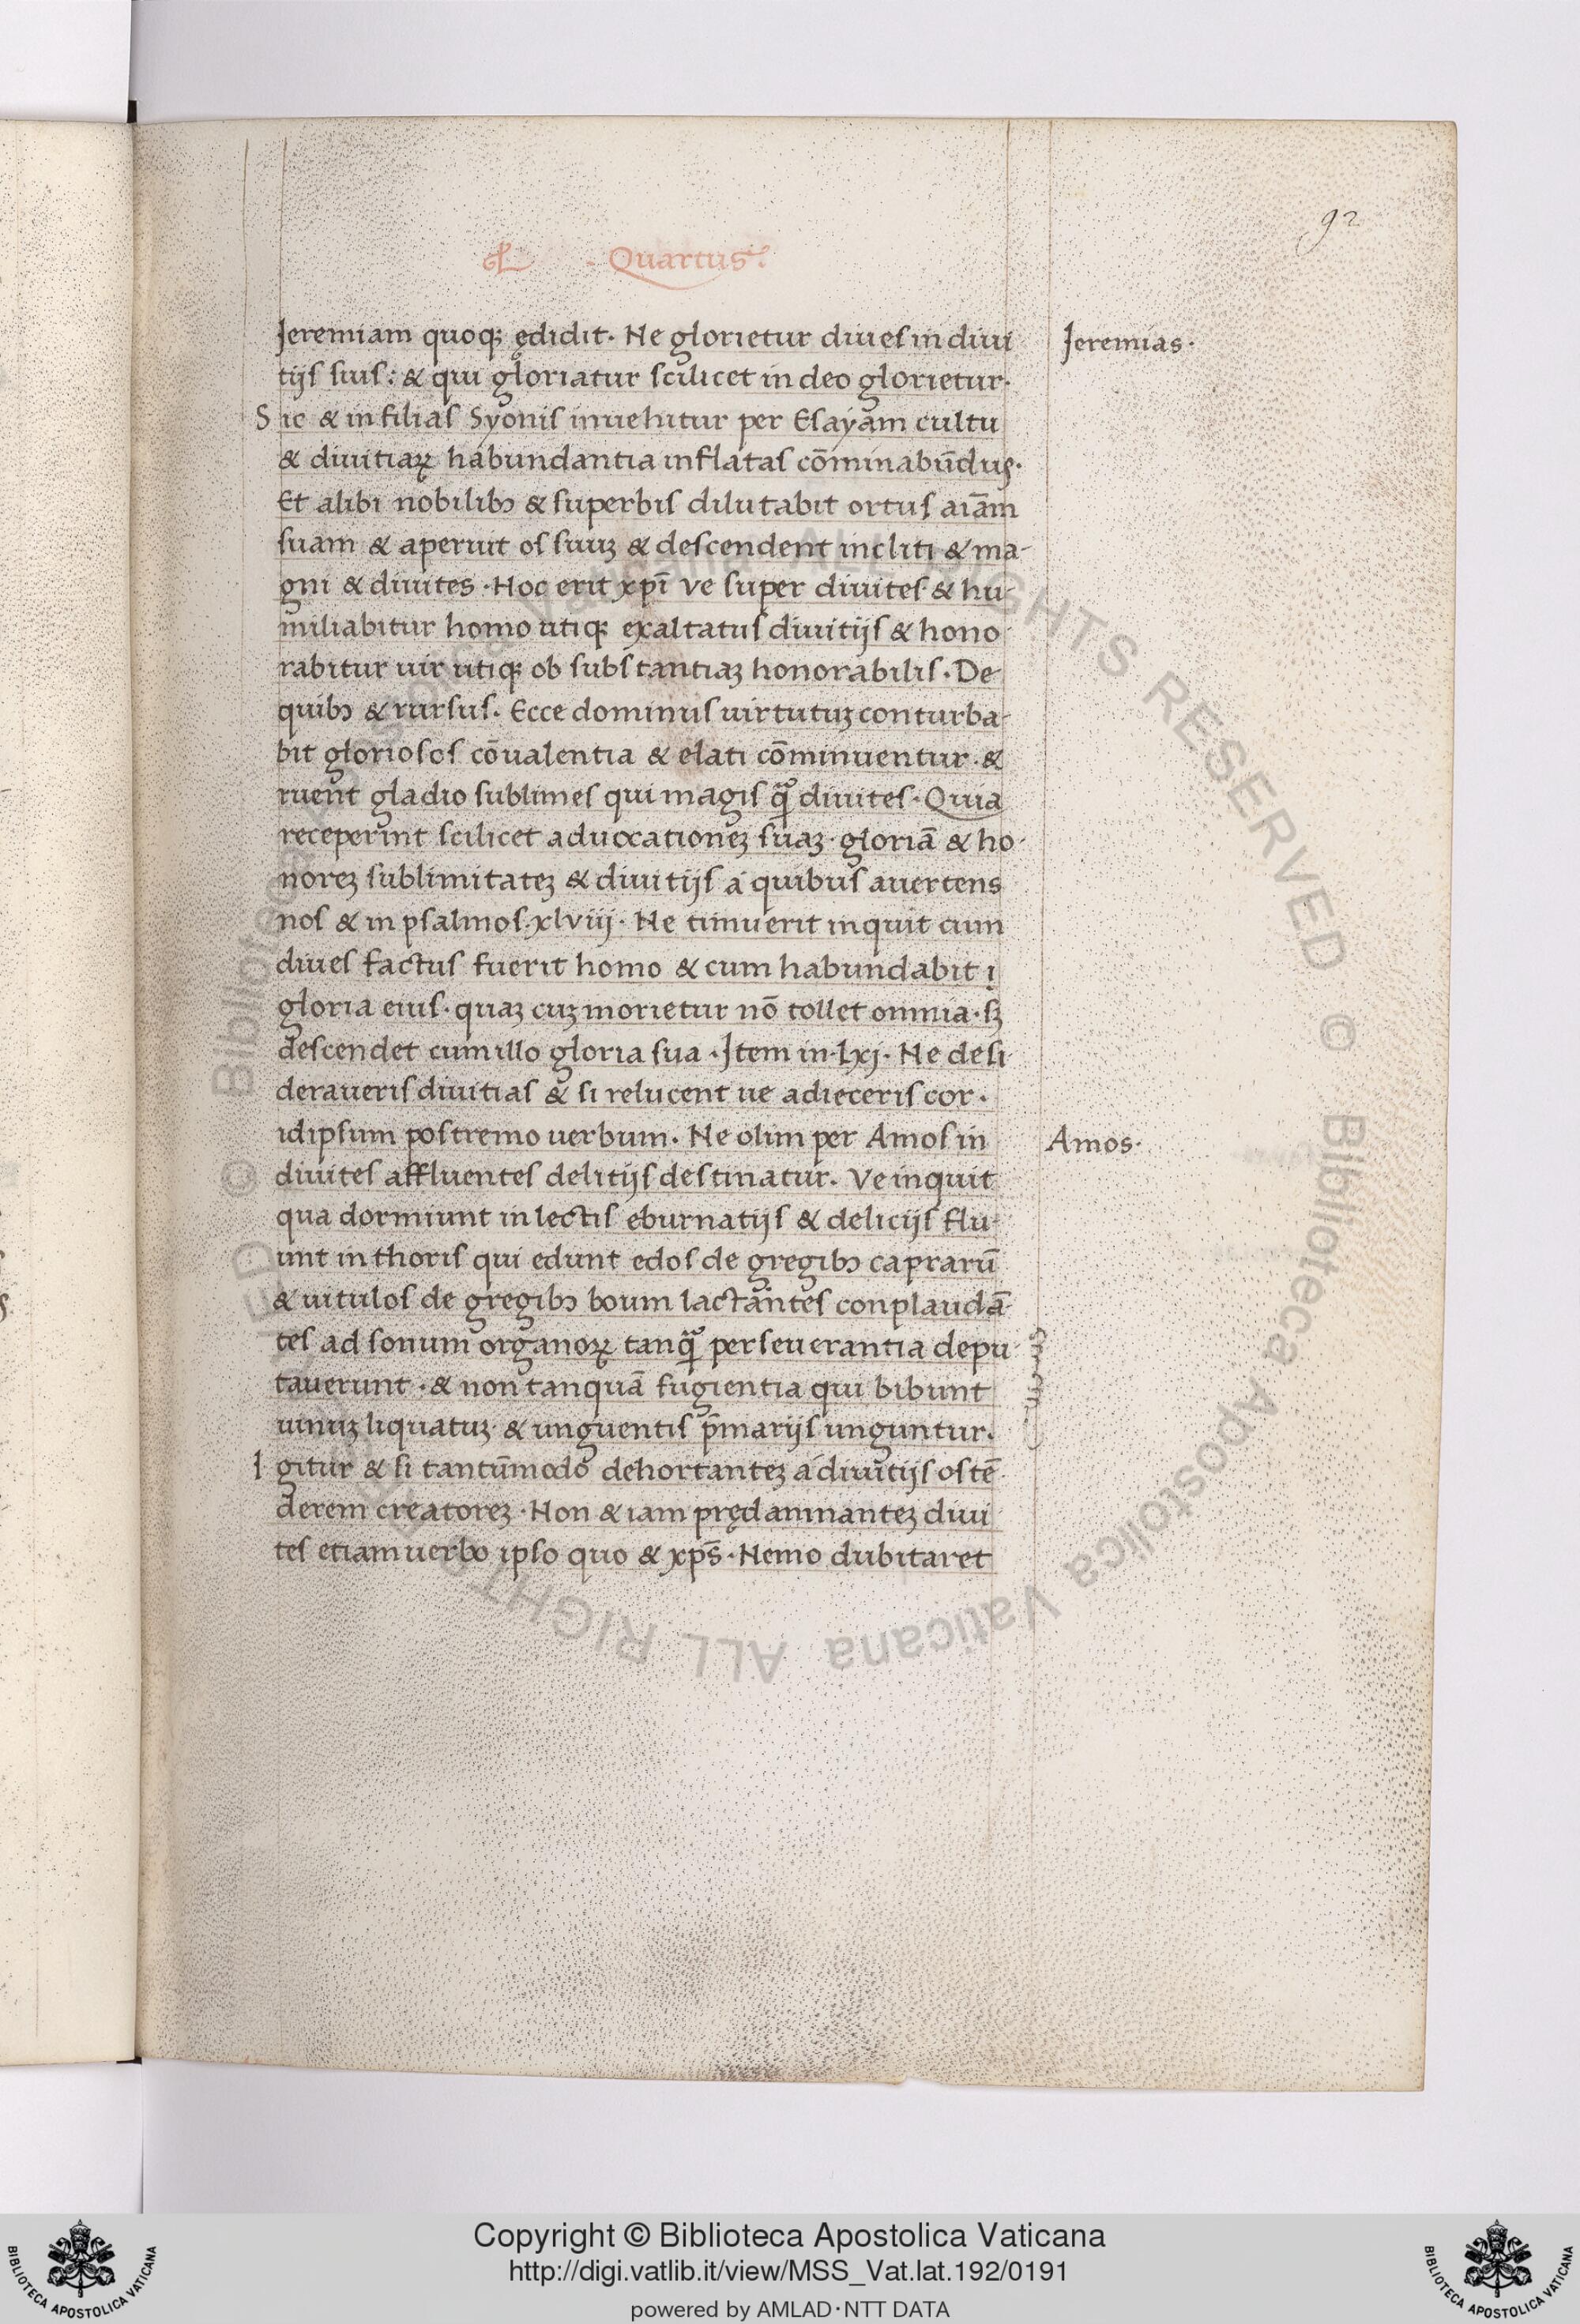 92
Quartus
Jeremiam quoq; ędidit. Ne glorietur diues in diui
tijs suis: & qui gloriatur scilicet in deo glorietur.
Sic & in filias Syonis inuehitur per Esayam cultu
& diuitiaꝝ habundantia inflatas cōminabūdus.
Et alibi nobilibꝰ & superbis dilutabit ortus aīam
suam & aperuit os suuꝫ & descendent incliti & ma-
gni & diuites. Hoc erit xpī ve super diuites & hu-
miliabitur homo utiqꝫ exaltatus diuitijs & hono
rabitur uir utiqꝫ ob substantiaꝫ honorabilis. De
quibꝰ & rursus. Ecce dominus uirtutuꝫ conturba-
bit gloriosos cōualentia & elati cōminuentur. &
ruent gladio sublimes qui magis qꝫ̃ diuites. Quia
receperunt scilicet aduocationeꝫ suaꝫ. gloriā & ho-
noreꝫ sublimitateꝫ & diuitijs a quibus auertens
nos & in psalmos. xlviij. Ne timuerit inquit cum
diues factus fuerit homo & cum habundabit i
gloria eius. quaꝫ cuꝫ morietur nō tollet omnia. sꝫ
descendet cum illo gloria sua. Jtem in. lxj. Ne desi
deraueris diuitias & si relucent ue adieceris cor.
idipsum postremo uerbum. Ne olim per Amos in
diuites affluentes delitijs destinatur. Ve inquit
qua dormiunt in lectis eburnatijs & delicijs flu-
unt in thoris qui edunt edos de gregibꝰ caprarū
& uitulos de gregibꝰ boum lactantes conplaudā-
tes ad sonum organoꝝ tanqꝫ̃ perseuerantia depu-
tauerunt. & non tanquā fugientia qui bibunt
uinuꝫ liquatuꝫ & unguentis p̄marijs unguntur.
Igitur & si tantūmodo dehortanteꝫ a diuitijs ostē
derem creatoreꝫ. Non & iam prędamnanteꝫ diui
tes etiam uerbo ipso quo & xps̄. Nemo dubitaret
Jeremias.
Amos.
© Biblioteca Apostolica Vaticana ALL RIGHTS RESERVED
Copyright © Biblioteca Apostolica Vaticana
http://digi.vatlib.it/view/MSS_Vat.lat.192/0191
powered by AMLAD·NTT DATA
BIBLIOTECA APOSTOLICA VATICANA
BIBLIOTECA APOSTOLICA VATICANA